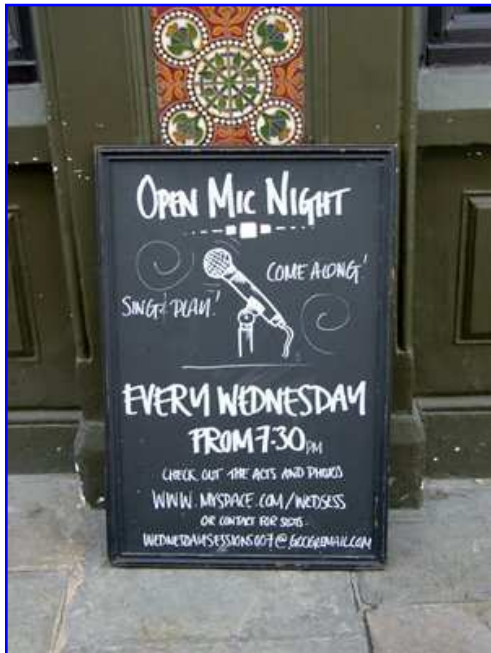 OPEN MIC NIGHT
COME ALONG!
SING & PLAY!
EVERY WEDNESDAY
FROM 7.30 PM
CHECK OUT THE ACTS AND PHOTOS
WWW.MYSPACE.COM/WEDSESS
OR CONTACT FOR SLOTS.
WEDNESDAYSESSIONS007@GOOGLEMAIL.COM